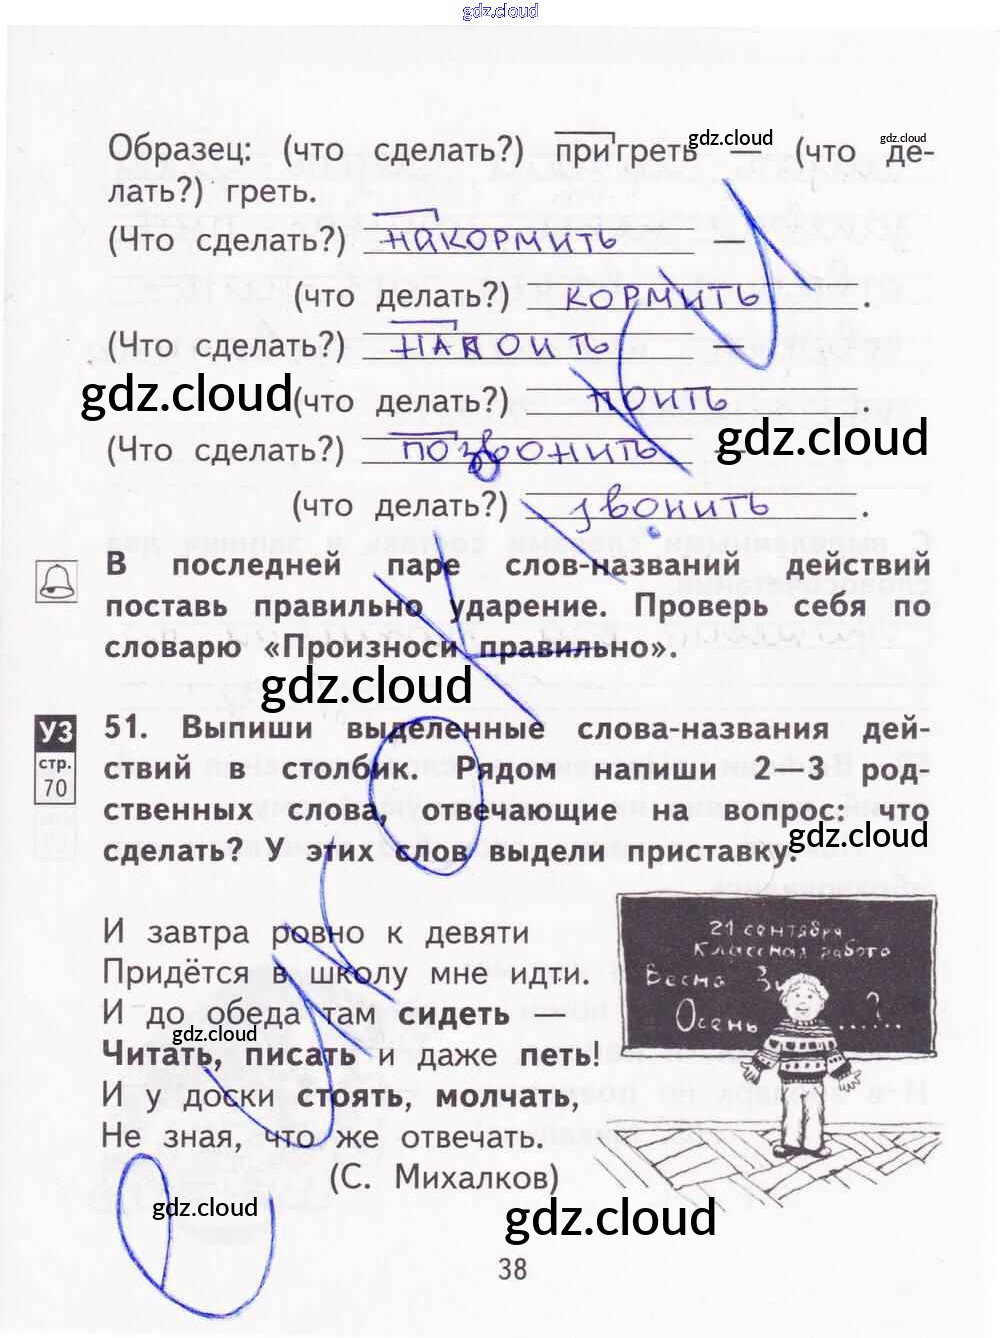 gdz.cloud
Образец: (что сделать?) пригреть — (что де-
gdz.cloud
gdz.cloud
лать?) греть.
(Что сделать?) накормить —
(что делать?) кормить.
(Что сделать?) напоить —
(что делать?) поить.
gdz.cloud
gdz.cloud
(Что сделать?) позвонить —
(что делать?) звонить.
В последней паре слов-названий действий
поставь правильно ударение. Проверь себя по
словарю «Произноси правильно».
gdz.cloud
УЗ
стр.
70
51. Выпиши выделенные слова-названия дей-
ствий в столбик. Рядом напиши 2—3 род-
ственных слова, отвечающие на вопрос: что
сделать? У этих слов выдели приставку.
gdz.cloud
И завтра ровно к девяти
Придётся в школу мне идти.
И до обеда там сидеть —
Читать, писать и даже петь!
И у доски стоять, молчать,
Не зная, что же отвечать.
(С. Михалков)
gdz.cloud
21 сентября
Классная работа
Весна Зи
Осень ......?
gdz.cloud
gdz.cloud
38